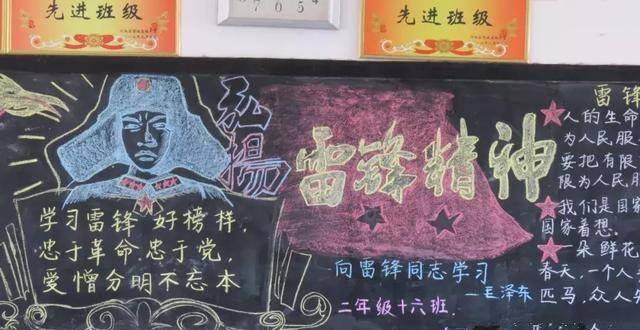 先进班级
先进班级
弘揚
雷锋精神
学习雷锋 好榜样,
忠于革命,忠于党,
爱憎分明不忘本
向雷锋同志学习
—毛泽东
二年级十六班.
雷锋
人的生命
为人民服
要把有限
限为人民服
我们是国家
国家着想.
一朵鲜花
春天,一个人
匹马,众人